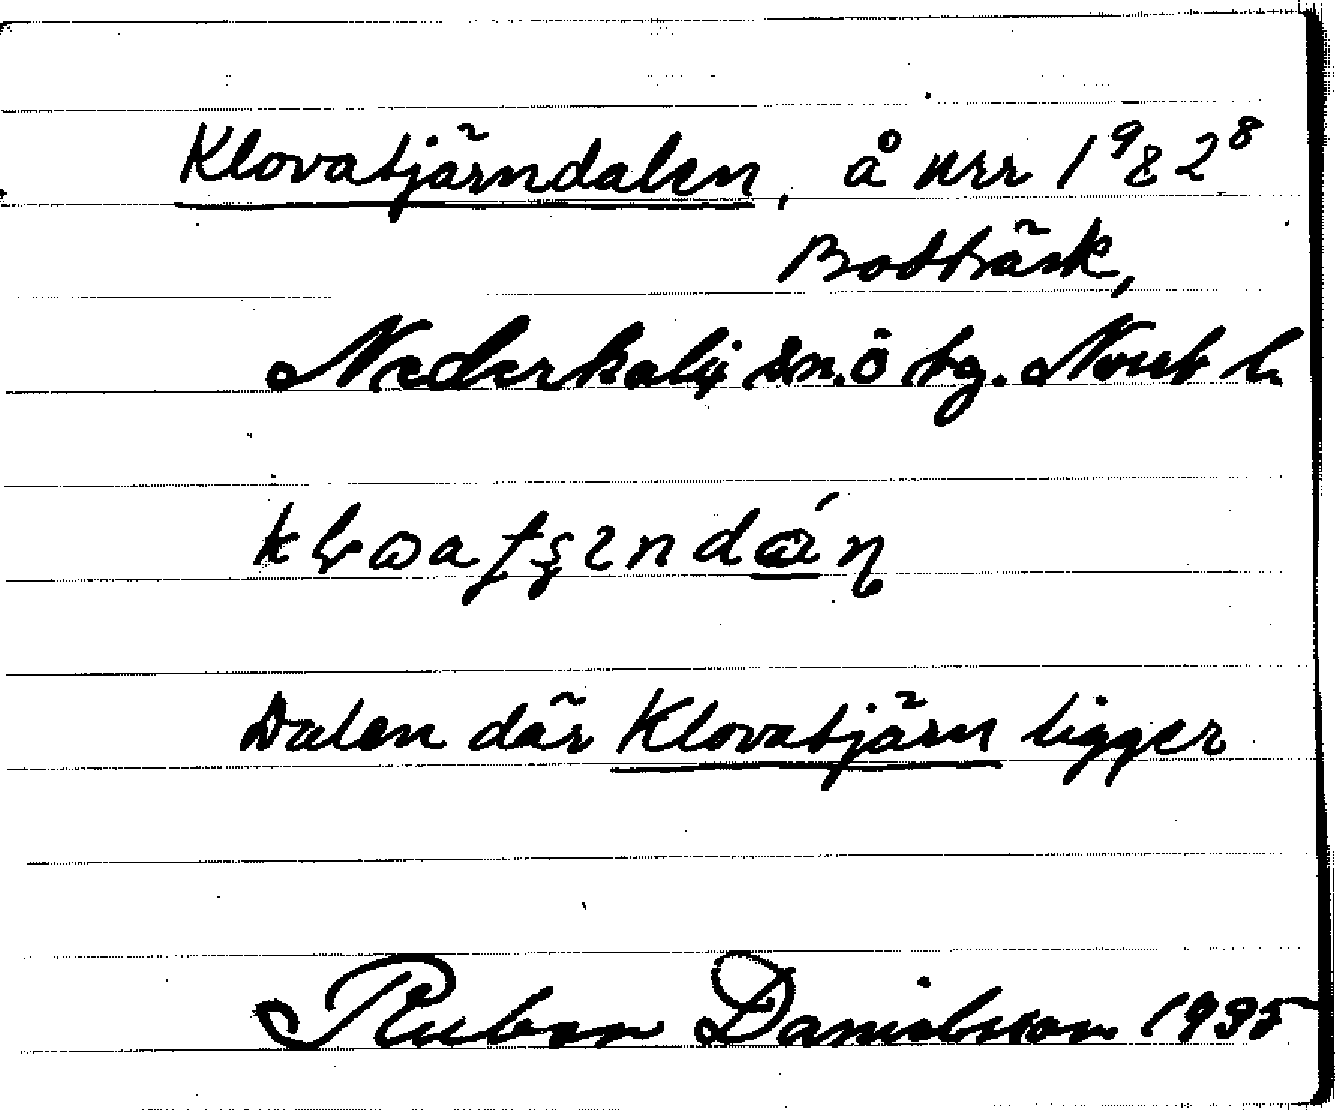 Klovatjärndalen, å urr 1⁹82⁸
Bodträsk,
Nederkalix sn. ö bg. Norrb l.
Dalen där Klovatjärn ligger
Ruben Danielsson 1935